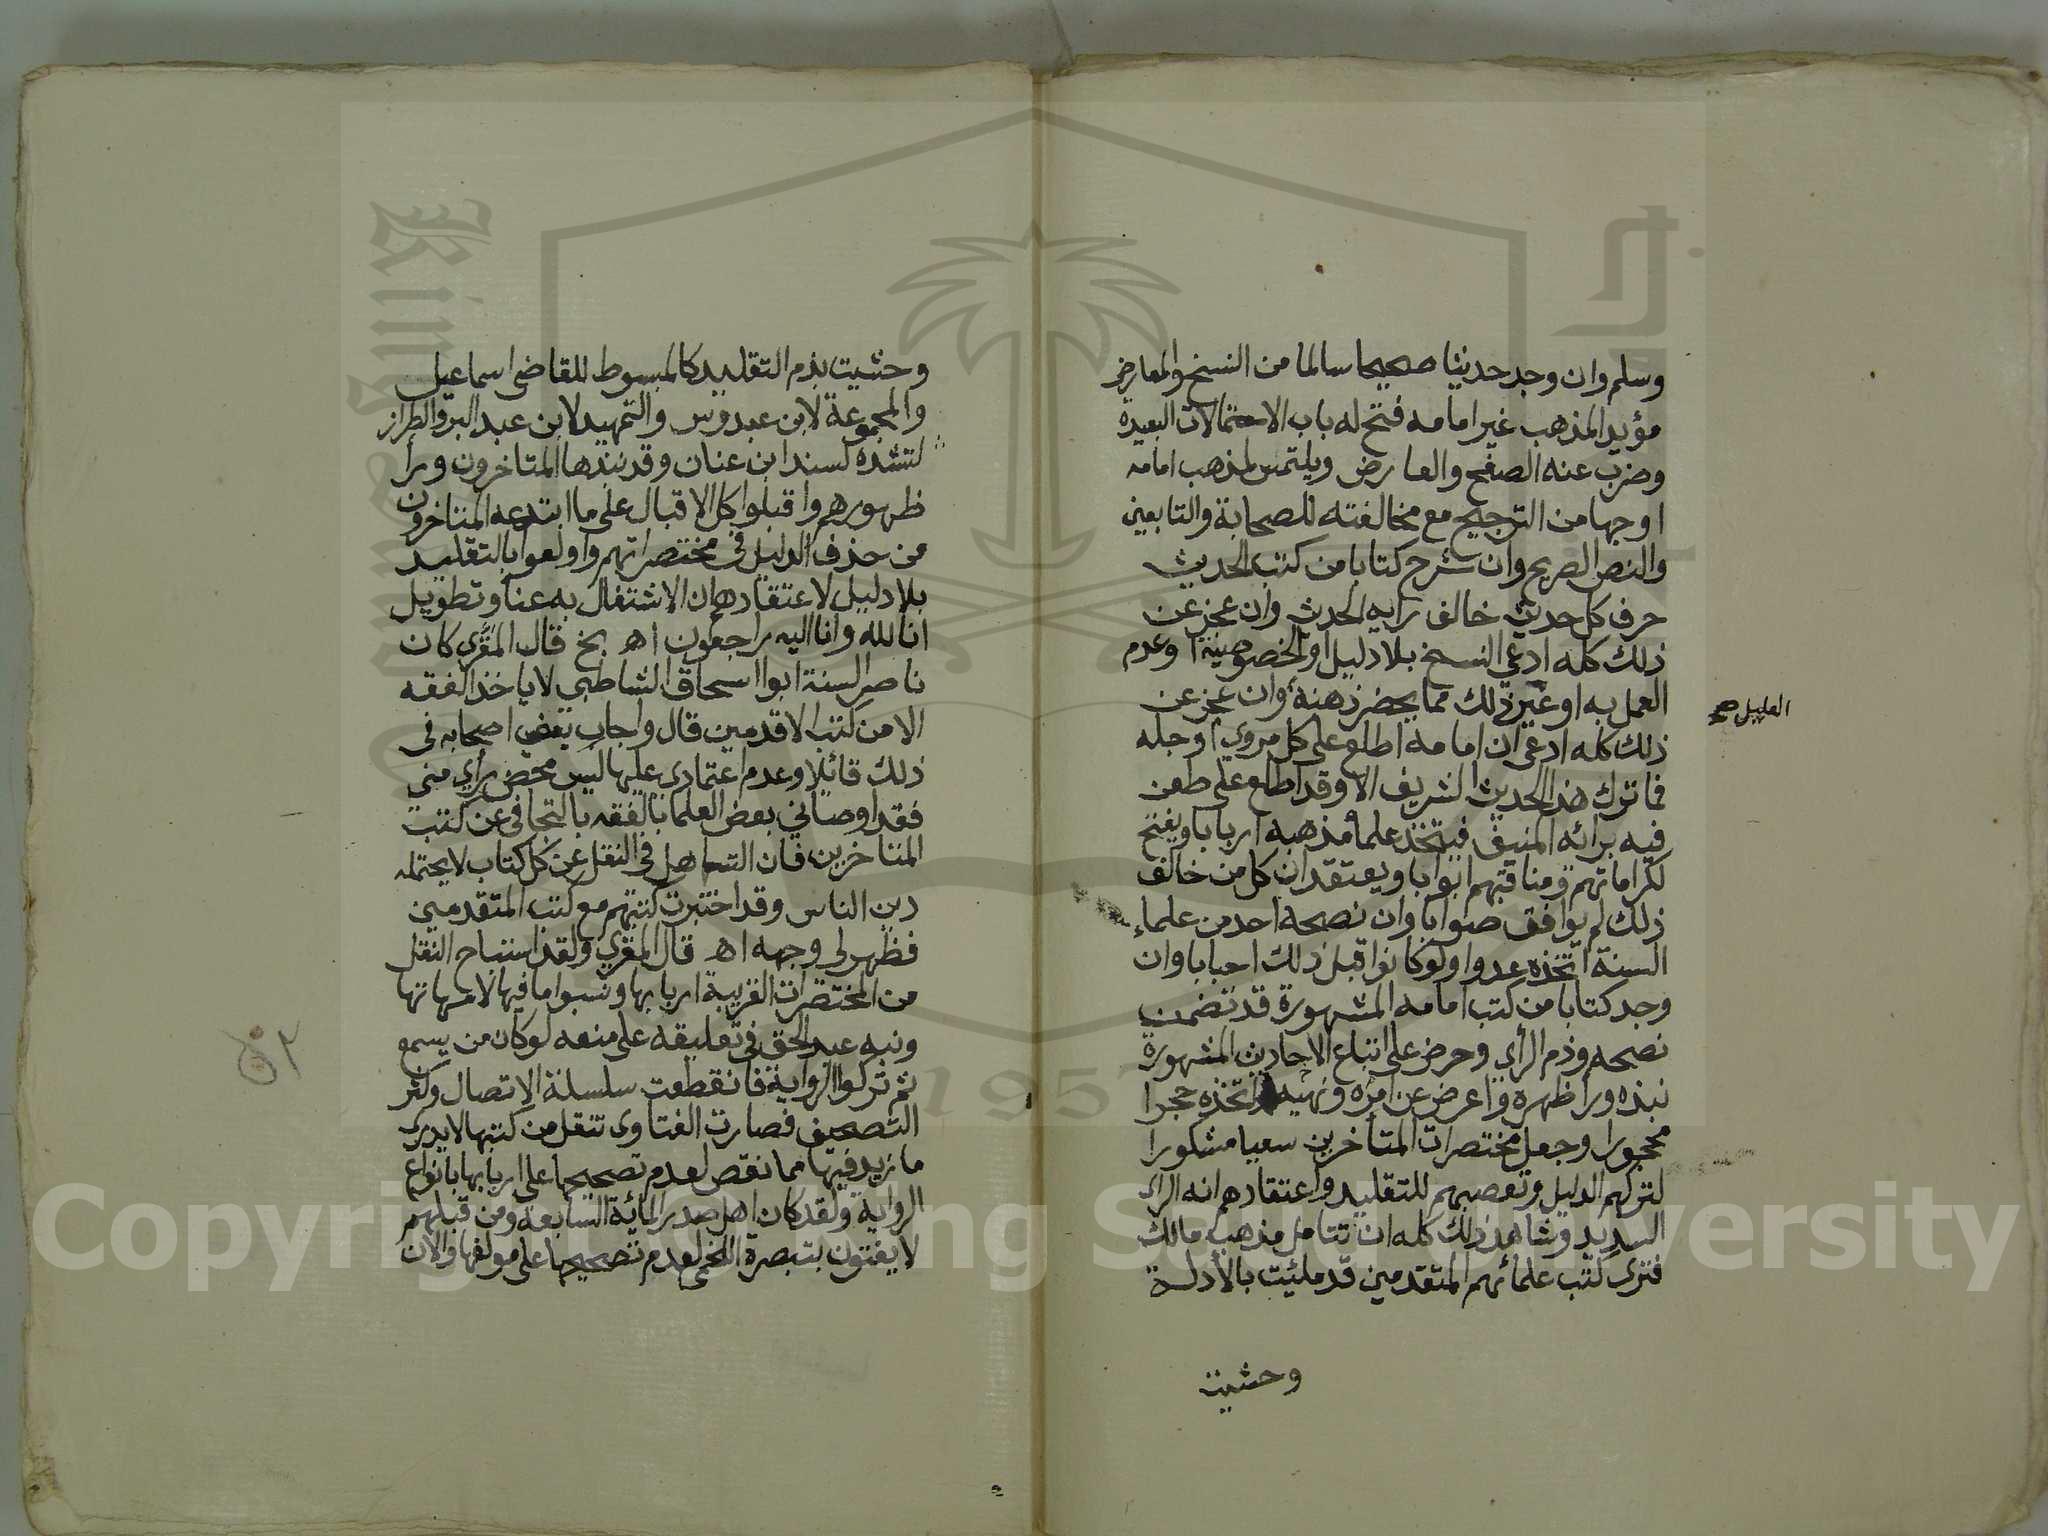 وسلم وان وجد حديثا صحيحا سالما من النسخ والمعارض
مؤيد المذهب غير امامه فتح له باب الاحتمالات البعيده
وضرب عنه الصفح والعارض ويلتمس لمذهب امامه
اوجها من الترجيح مع مخالفته للصحابة والتابعين
والنص الصريح وان شرح كتابا من كتب الحديث
حرف كل حديث خالف رايه الحدث وان عجز عن
ذلك كله ادعى النسخ بلا دليل او الخصوصية او عدم
العمل به او غير ذلك مما يحضر ذهنه وان عجز عن
العليل صح
ذلك كله ادعى ان امامه اطلع على كل مروي او جله
فما ترك هذا الحديث الشريف الا وقد اطلع على طعن
فيه برائه المنيف فيتخذ علماء مذهبه اربابا ويفتح
لكراماتهم ومناقبهم ابوابا ويعتقد ان كل من خالف
ذلك لم يوافق صوابا وان نصحه احد من علماء
السنة اتخذه عدوا ولو كانوا قبل ذلك احبابا وان
وجد كتابا من كتب امامه المشهورة قد تضمن
نصحه وذم الرأي وحرض على اتباع الاحاديث المشهورة
نبذه ورا ظهره واعرض عن امره ونهيه واتخذه حجرا
محجورا وجعل مختصرات المتأخرين سعيا مشكورا
لتركهم الدليل وتعصبهم للتقليد واعتقادهم انه الراى
السديد وشاهد ذلك كله ان تتامل مذهب مالك
فترى كتب علمائهم المتقدمين قد ملئت بالأدلة
وحشيت
وحشيت بذم التقليد كالمبسوط للقاضي اسماعيل
والمجموعة لابن عبدوس والتمهيد لابن عبد البر والطراز
لسند ابن عنان وقد نبذها المتاخرون ورا
ظهورهم واقبلوا كل الاقبال على ما ابتدعه المتاخرون
من حذف الدليل في مختصراتهم واولعوا بالتقليد
بلا دليل لاعتقادهم ان الاشتغال به عنا وتطويل
انا لله وانا اليه راجعون اه بخ قال المقري كان
ناصر السنة ابوا اسحاق الشاطبي لا ياخذ الفقه
الا من كتب الاقدمين قال واجاب بعض اصحابه في
ذلك قائلا وعدم اعتمادى عليها ليس محض رأي مني
فقد اوصاني بعض العلما بالفقه بالتجافى عن كتب
المتاخرين فان التساهل في النقل عن كل كتاب لا يحتمله
دين الناس وقد اختبرت كتبهم مع كتب المتقدمين
فظهر لي وجهه اه قال المقري ولقد استباح النقل
من المختصرات الغريبة اربابها ونسبوا ما فيها لامهاتها
ونبه عبد الحق في تعليقه على منعه لو كان من يسمع
ثم تركوا الرواية فانقطعت سلسلة الاتصال وكثر
التصحيف فصارت الفتاوى تنقل من كتبها لا يدرى
ما زيد فيها مما نقص لعدم تصحيحها على اربابها بانواع
الرواية ولقد كان اهل صدر المائة السابعة ومن قبلهم
لا يفتون بتبصرة اللخمي لعدم تصحيحها على مولفها والان
٥٢
Copyright © King Saud University
1957